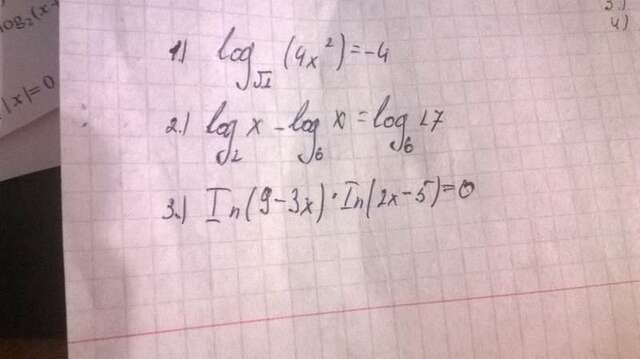 log₂(x
|x|=0
3.)
4)
1.) log_√2 (4x²)=-4
2.) log₂ x - log₆ x = log₆ 27
3.) In(9-3x)·In(2x-5)=0